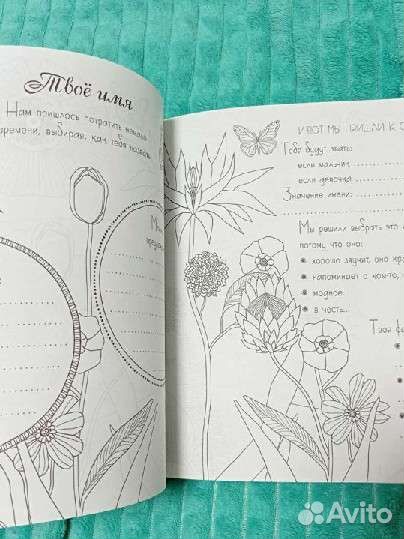 Твоё имя
Нам пришлось потратить немало
времени, выбирая, как тебя назвать.
И ВОТ МЫ ПРИШЛИ К
Тебя будут звать:
если мальчик
если девочка
Значение имени:
Мы решили выбрать это
потому что оно:
хорошо звучит, оно
напоминает о ком-то,
модное.
в честь
Твоя
Avito